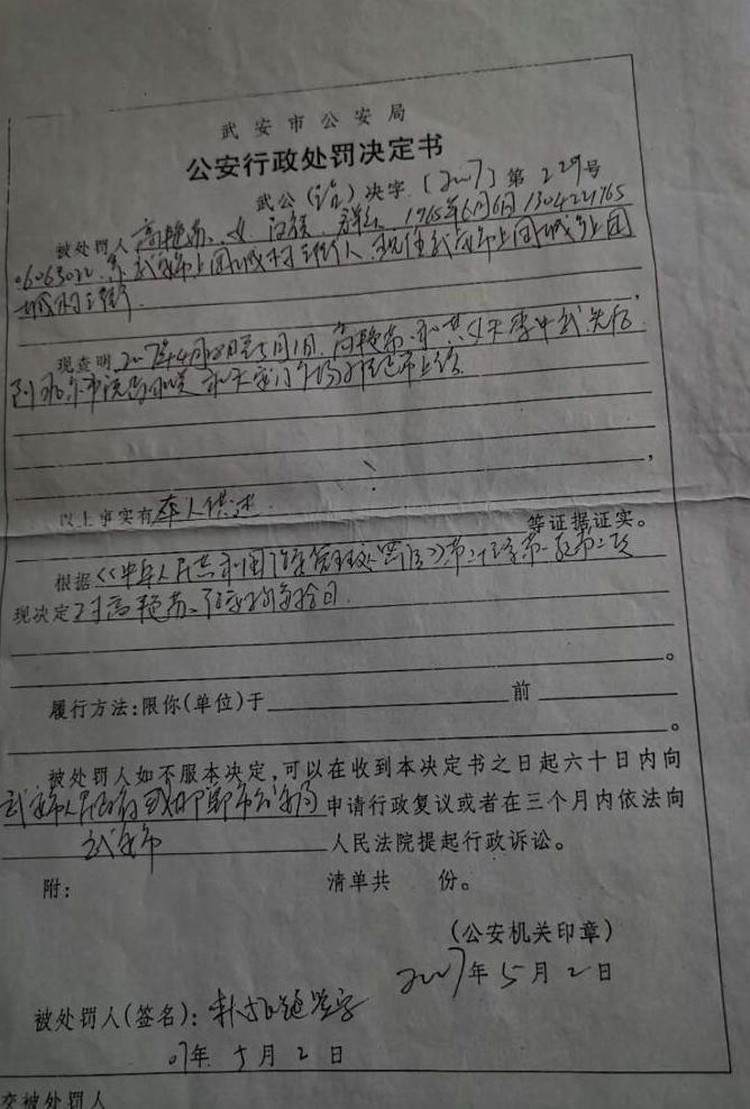 武安市公安局
公安行政处罚决定书
武公(治)决字〔2007〕第229号
被处罚人高艳芬、女 汉族 1965年6月6日 130421765
06063022.系武安市上团城村三街人 现住武安市上团城乡上团
城村三街
现查明 2007年4月28日至5月1日. 高艳芬和其丈夫李中武先后
到 和天安门广场 上访
,
以上事实有 本人供述.
等证据证实。
根据《中华人民共和国治安管理处罚法》第二十三条第一款第二项
现决定 对高艳芬 行政拘留拾日.
。
履行方法:限你(单位)于 前
。
被处罚人如不服本决定,可以在收到本决定书之日起六十日内向
武安市人民政府或邯郸市公安局申请行政复议或者在三个月内依法向
武安市 人民法院提起行政诉讼。
附: 清单共 份。
(公安机关印章)
2007年5月2日
被处罚人(签名): 拒绝签字
07年 5月2日
交被处罚人